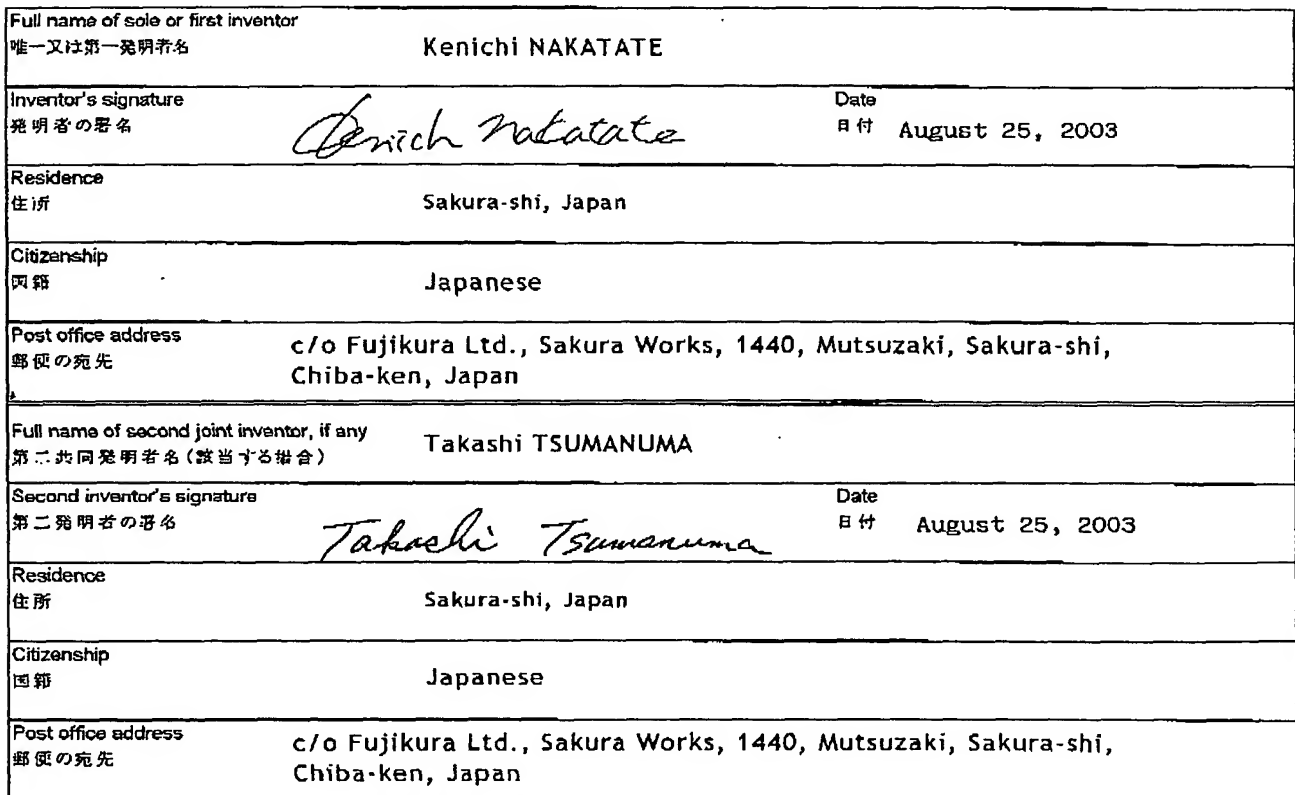 Full name of sole or first inventor
唯一又は第一発明者名 Kenichi NAKATATE
Inventor's signature
発明者の署名 Kenich Nakatate
Date
日付 August 25, 2003
Residence
住所 Sakura-shi, Japan
Citizenship
国籍 Japanese
Post office address
郵便の宛先
c/o Fujikura Ltd., Sakura Works, 1440, Mutsuzaki, Sakura-shi,
Chiba-ken, Japan
Full name of second joint inventor, if any
第二共同発明者名(該当する場合) Takashi TSUMANUMA
Second inventor's signature
第二発明者の署名 Takashi Tsumanuma
Date
日付 August 25, 2003
Residence
住所 Sakura-shi, Japan
Citizenship
国籍 Japanese
Post office address
郵便の宛先
c/o Fujikura Ltd., Sakura Works, 1440, Mutsuzaki, Sakura-shi,
Chiba-ken, Japan